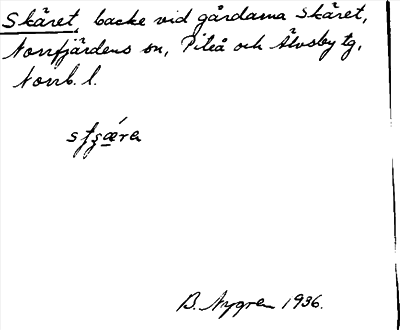 Skäret, backe vid gårdarna Skäret,
Norrfjärdens sn, Piteå och Älvsby tg,
Norrb. l.
B. Nygren 1936.